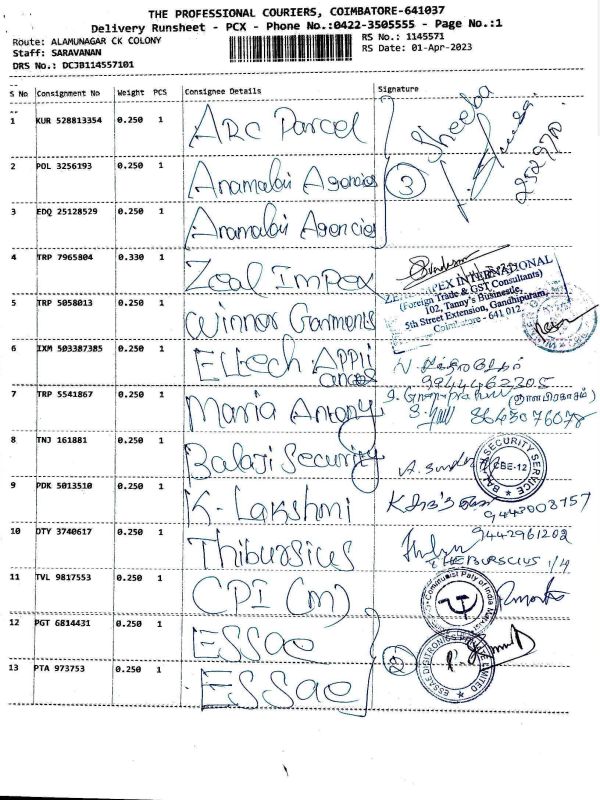 THE PROFESSIONAL COURIERS, COIMBATORE-641037
Delivery Runsheet - PCX - Phone No.:0422-3505555 - Page No.:1
Route: ALAMUNAGAR CK COLONY RS No.: 1145571
Staff: SARAVANAN RS Date: 01-Apr-2023
DRS No.: DCJB114557101
S No Consignment No Weight PCS Consignee Details Signature
1 KUR 528813354 0.250 1 ARC Parcel Sheeba
2 POL 3256193 0.250 1 Anamalai Agencies 3
3 EDQ 25128529 0.250 1 Anamalai Agencies
4 TRP 7965804 0.330 1 Zeal Impex
INTERNATIONAL
(Foreign Trade & GST Consultants)
102, Tanny's Businestle,
5th Street Extension, Gandhipuram,
Coimbatore - 641 012.
5 TRP 5058013 0.250 1 Winner Garments
6 IXM 503387385 0.250 1 Eltech Appli
ances
9944462305
7 TRP 5541867 0.250 1 Maria Antony
8 TNJ 161881 0.250 1 Balaji Security
SECURITY SERVICE
CBE-12
9 PDK 5013510 0.250 1 K. Lakshmi
9443003757
10 DTY 3740617 0.250 1 Thibursius 9442961202
THEBURSCIUS 1/4
11 TVL 9817553 0.250 1 CPI (M)
Communist Paty of India
12 PGT 6814431 0.250 1 ESSae
13 PTA 973753 0.250 1 ESSae
ESSAE DIGITRONICS LIMITED